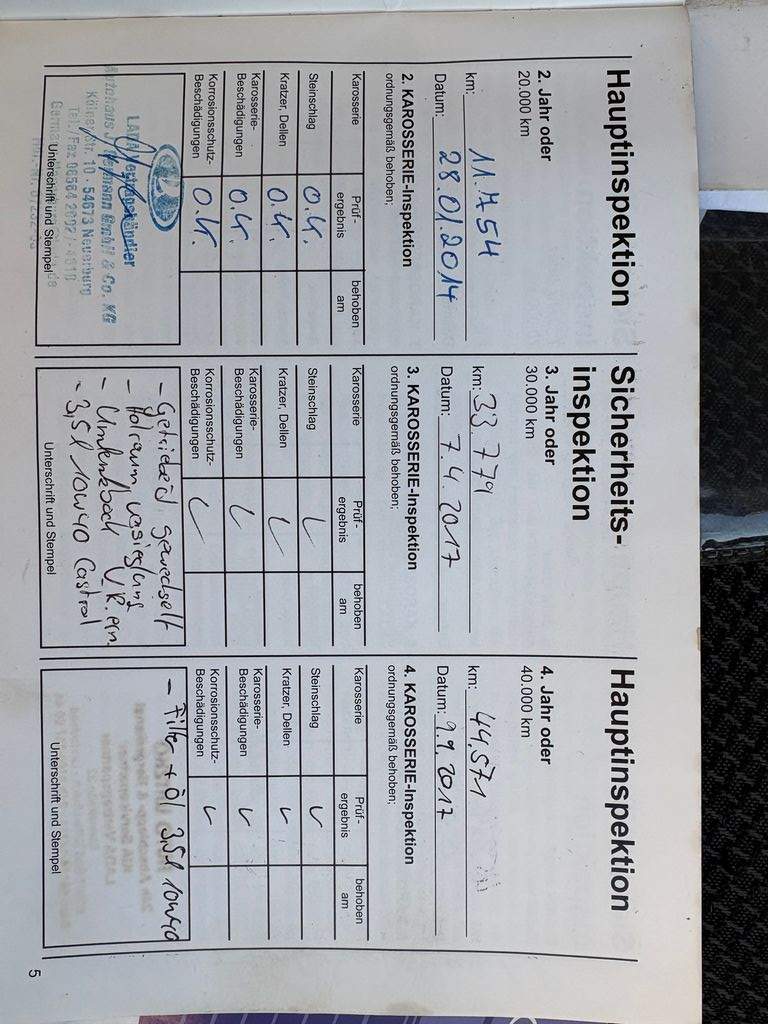 Hauptinspektion
2. Jahr oder
20.000 km
km: 11.754
Datum: 28.01.2014
2. KAROSSERIE-Inspektion
ordnungsgemäß behoben;
Karosserie Prüf-ergebnis behoben am
Steinschlag O.K.
Kratzer, Dellen O.K.
Karosserie-Beschädigungen O.K.
Korrosionsschutz-Beschädigungen O.K.
LADA Vertragshändler
Autohaus GmbH & Co. KG
10 - 54673 Neuerburg
Tel./Fax 06564
Unterschrift und Stempel
Sicherheits-
inspektion
3. Jahr oder
30.000 km
km: 33.779
Datum: 7.4.2017
3. KAROSSERIE-Inspektion
ordnungsgemäß behoben;
Karosserie Prüf-ergebnis behoben am
Steinschlag ✓
Kratzer, Dellen ✓
Karosserie-Beschädigungen ✓
Korrosionsschutz-Beschädigungen ✓
- gewechselt
-
-
- 3,5l 10W40 Castrol
Unterschrift und Stempel
Hauptinspektion
4. Jahr oder
40.000 km
km: 44.571
Datum: 9.9.2017
4. KAROSSERIE-Inspektion
ordnungsgemäß behoben;
Karosserie Prüf-ergebnis behoben am
Steinschlag ✓
Kratzer, Dellen ✓
Karosserie-Beschädigungen ✓
Korrosionsschutz-Beschädigungen ✓
- Filter + Öl 3,5l 10W40
Unterschrift und Stempel
5